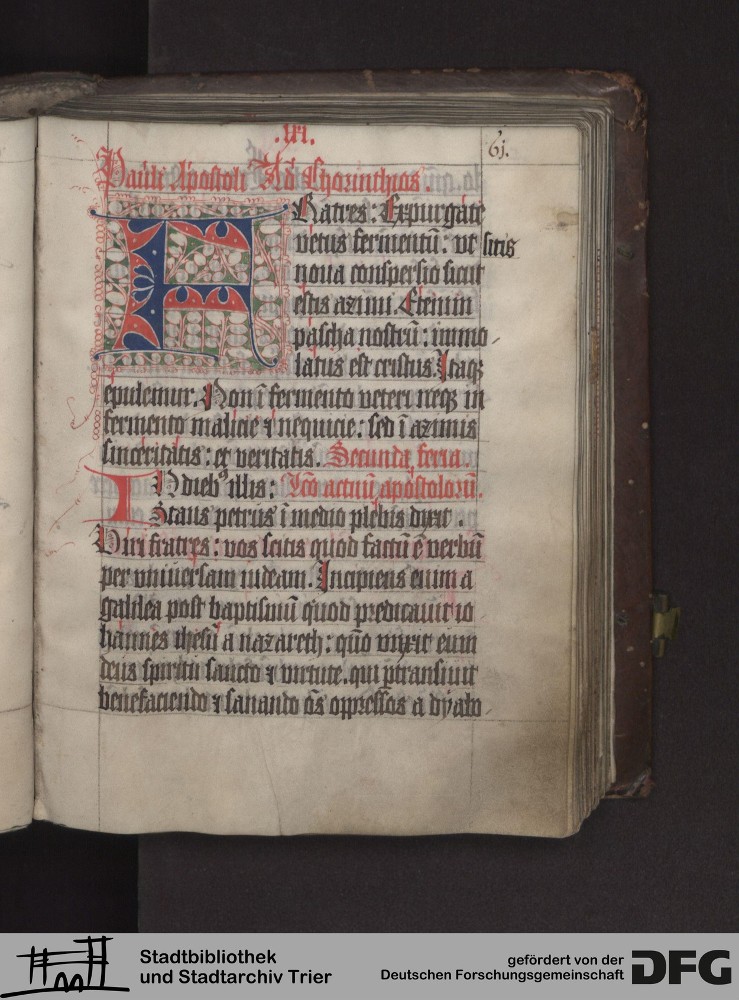 .lxi.
6j.
Pauli Apostoli Ad Chorinthios.
FRatres: Expurgate
vetus fermentũ: vt sitis
noua conspersio sicut
estis azimi. Etenim
pascha nostrũ: immo-
latus est cristus. Itaqz
epulemur. Non ĩ fermento veteri neqz in
fermento malicie ⁊ nequicie: sed ĩ azimis
sinceritatis: et veritatis. Secunda feria.
IN diebꝰ illis: Lc̃o actuũ apostolorũ.
Stans petrus ĩ medio plebis dixit.
Viri fratres: vos scitis quod factũ ẽ verbũ
per vniuersam iudeam. Incipiens enim a
galilea post baptismũ quod predicauit io
hannes ihesũ a nazareth: quõ vnxit eum
deus spiritu sancto ⁊ virtute. qui ꝑtransiuit
benefaciendo ⁊ sanando oẽs oppressos a dyabo-
Stadtbibliothek
und Stadtarchiv Trier
gefördert von der
Deutschen Forschungsgemeinschaft
DFG